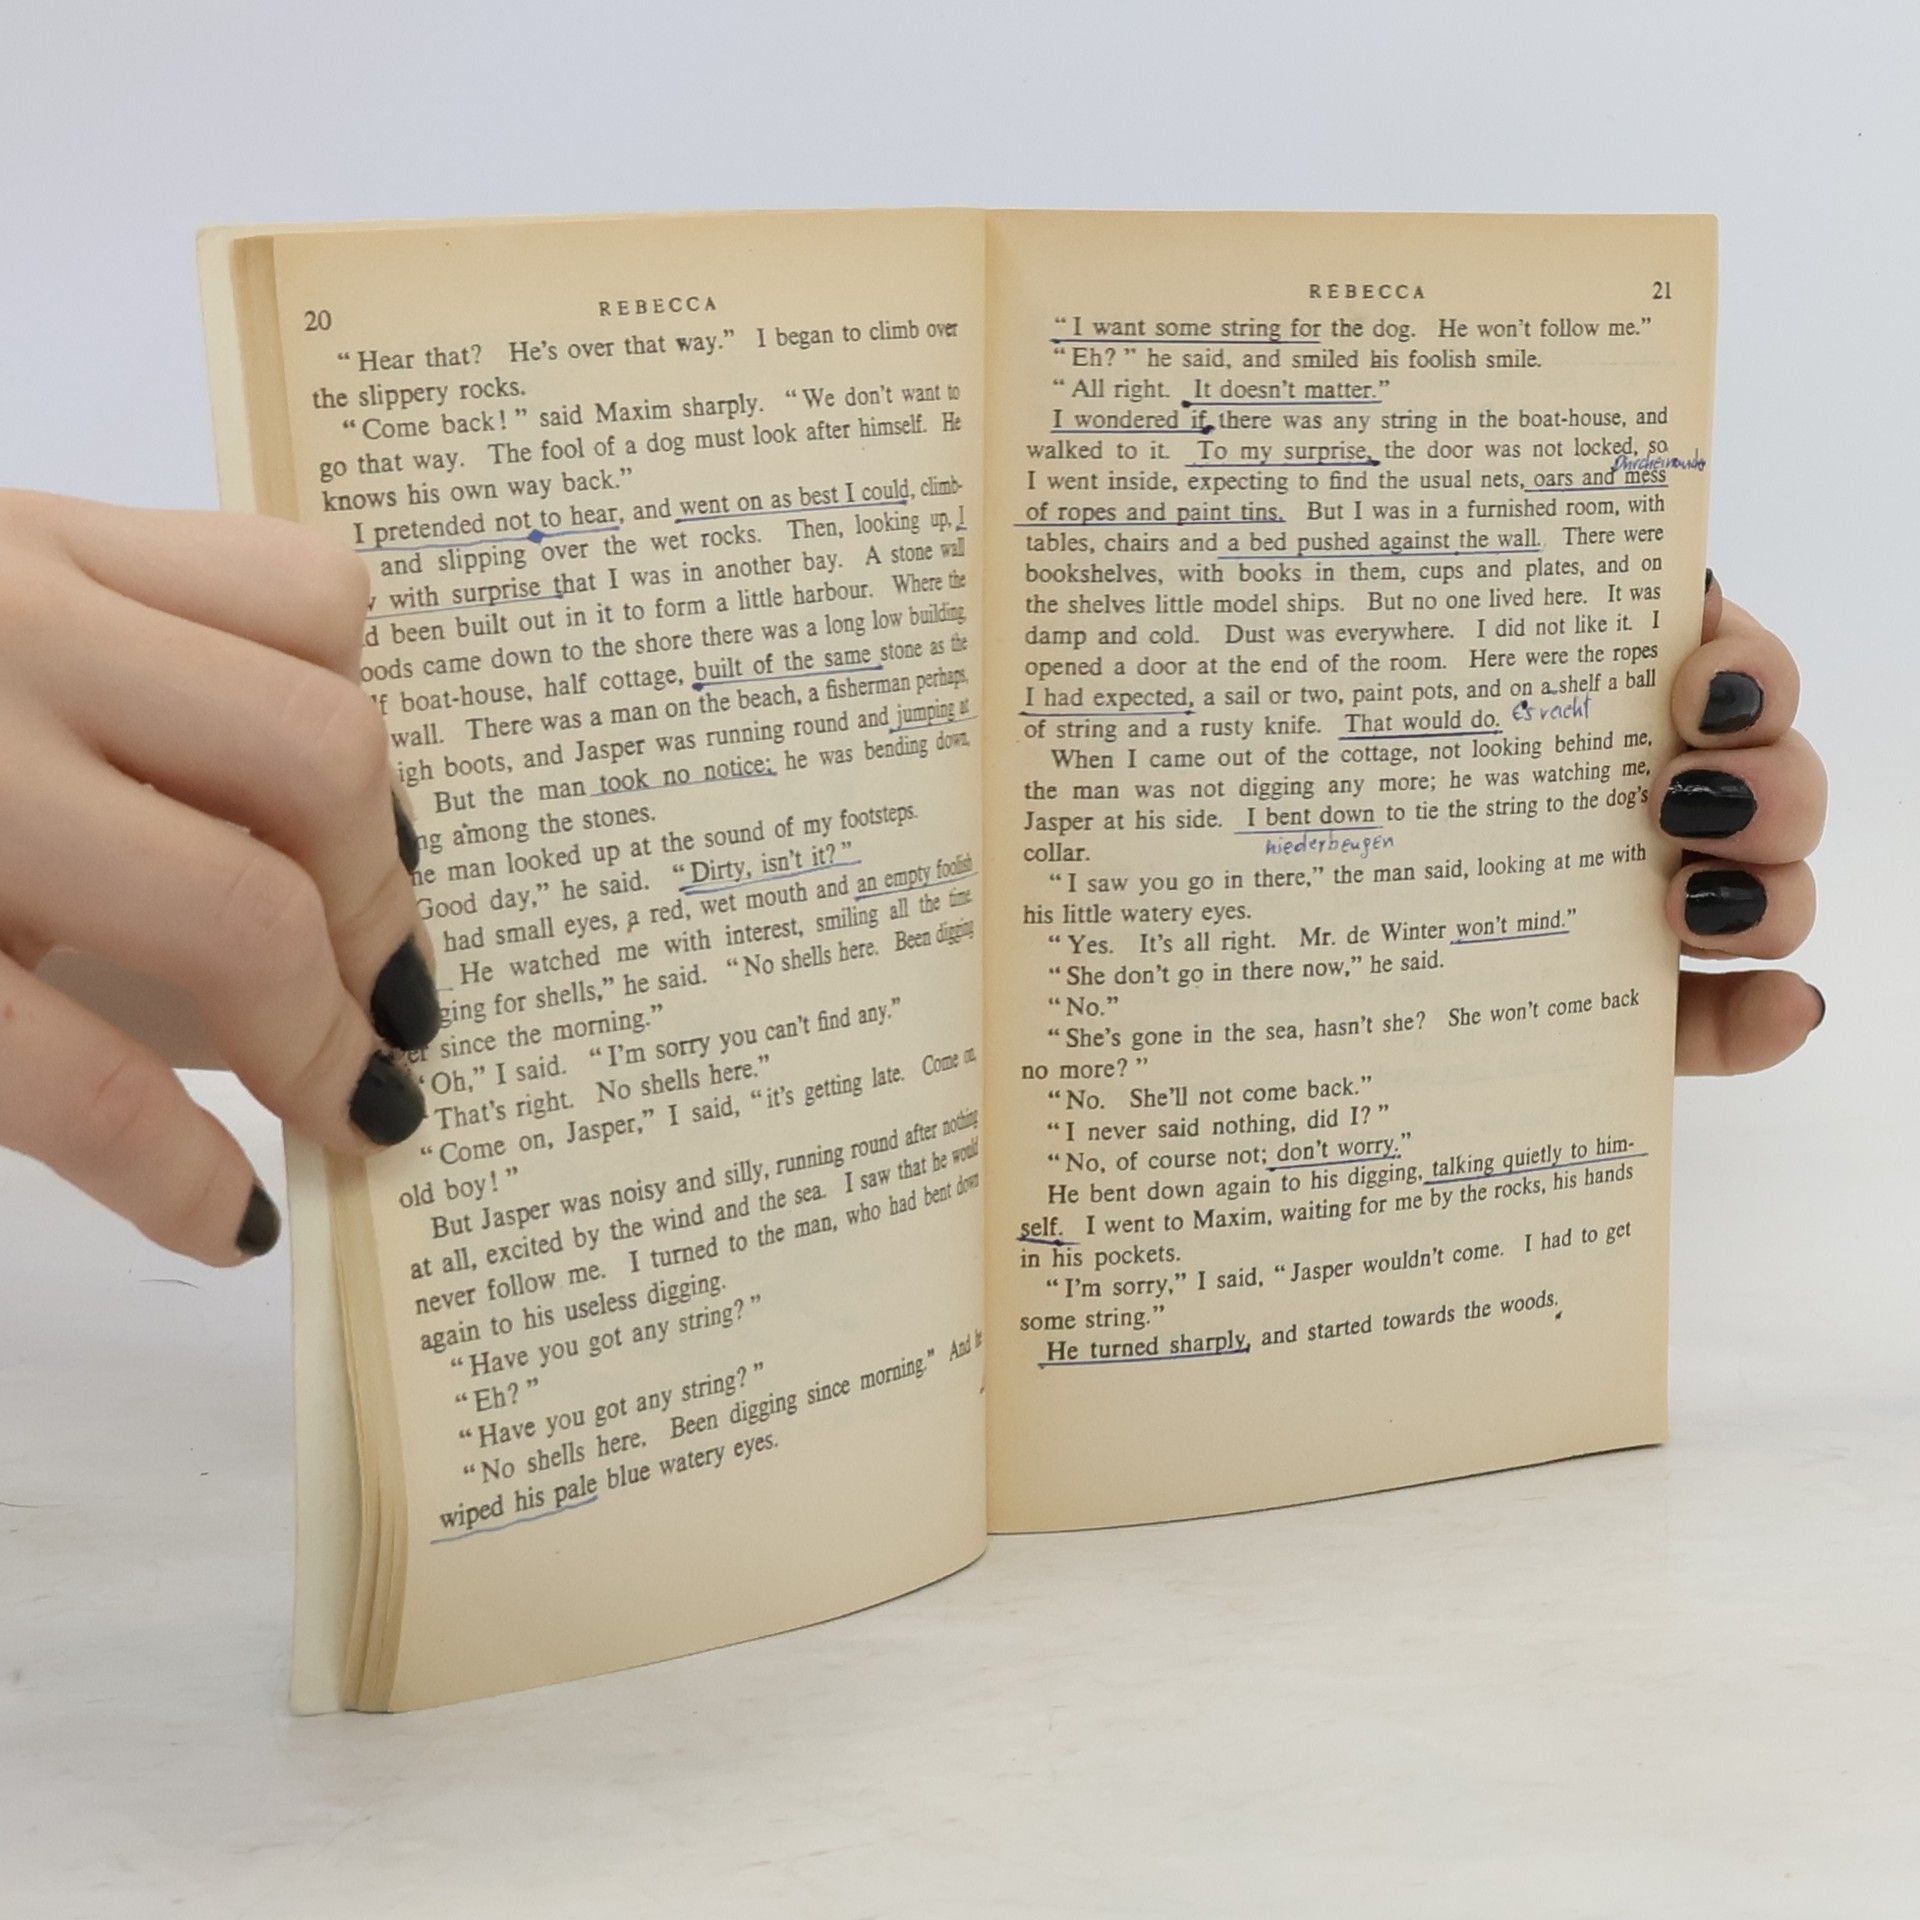 20
REBECCA
“Hear that? He's over that way.” I began to climb over
the slippery rocks.
“Come back!” said Maxim sharply. “We don't want to
go that way. The fool of a dog must look after himself. He
knows his own way back.”
I pretended not to hear, and went on as best I could, climb-
and slipping over the wet rocks. Then, looking up, I
with surprise that I was in another bay. A stone wall
been built out in it to form a little harbour. Where the
came down to the shore there was a long low building,
boat-house, half cottage, built of the same stone as the
wall. There was a man on the beach, a fisherman perhaps,
boots, and Jasper was running round and jumping at
But the man took no notice; he was bending down,
among the stones.
man looked up at the sound of my footsteps.
Good day,” he said. “Dirty, isn't it?”
had small eyes, a red, wet mouth and an empty foolish
He watched me with interest, smiling all the time.
for shells,” he said. “No shells here. Been digging
since the morning.”
“Oh,” I said. “I'm sorry you can't find any.”
That's right. No shells here.”
“Come on, Jasper,” I said, “it's getting late. Come on,
old boy!”
But Jasper was noisy and silly, running round after nothing
at all, excited by the wind and the sea. I saw that he would
never follow me. I turned to the man, who had bent down
again to his useless digging.
“Have you got any string?”
“Eh?”
“Have you got any string?”
“No shells here. Been digging since morning.” And he
wiped his pale blue watery eyes.
REBECCA
21
“I want some string for the dog. He won't follow me.”
“Eh?” he said, and smiled his foolish smile.
“All right. It doesn't matter.”
I wondered if there was any string in the boat-house, and
walked to it. To my surprise, the door was not locked, so
Durcheinander
I went inside, expecting to find the usual nets, oars and mess
of ropes and paint tins. But I was in a furnished room, with
tables, chairs and a bed pushed against the wall. There were
bookshelves, with books in them, cups and plates, and on
the shelves little model ships. But no one lived here. It was
damp and cold. Dust was everywhere. I did not like it. I
opened a door at the end of the room. Here were the ropes
I had expected, a sail or two, paint pots, and on a shelf a ball
of string and a rusty knife. That would do. Es reicht
When I came out of the cottage, not looking behind me,
the man was not digging any more; he was watching me,
Jasper at his side. I bent down to tie the string to the dog's
collar. niederbeugen
“I saw you go in there,” the man said, looking at me with
his little watery eyes.
“Yes. It's all right. Mr. de Winter won't mind.”
“She don't go in there now,” he said.
“No.”
“She's gone in the sea, hasn't she? She won't come back
no more?”
“No. She'll not come back.”
“I never said nothing, did I?”
“No, of course not; don't worry.”
He bent down again to his digging, talking quietly to him-
self. I went to Maxim, waiting for me by the rocks, his hands
in his pockets.
“I'm sorry,” I said, “Jasper wouldn't come. I had to get
some string.”
He turned sharply, and started towards the woods.